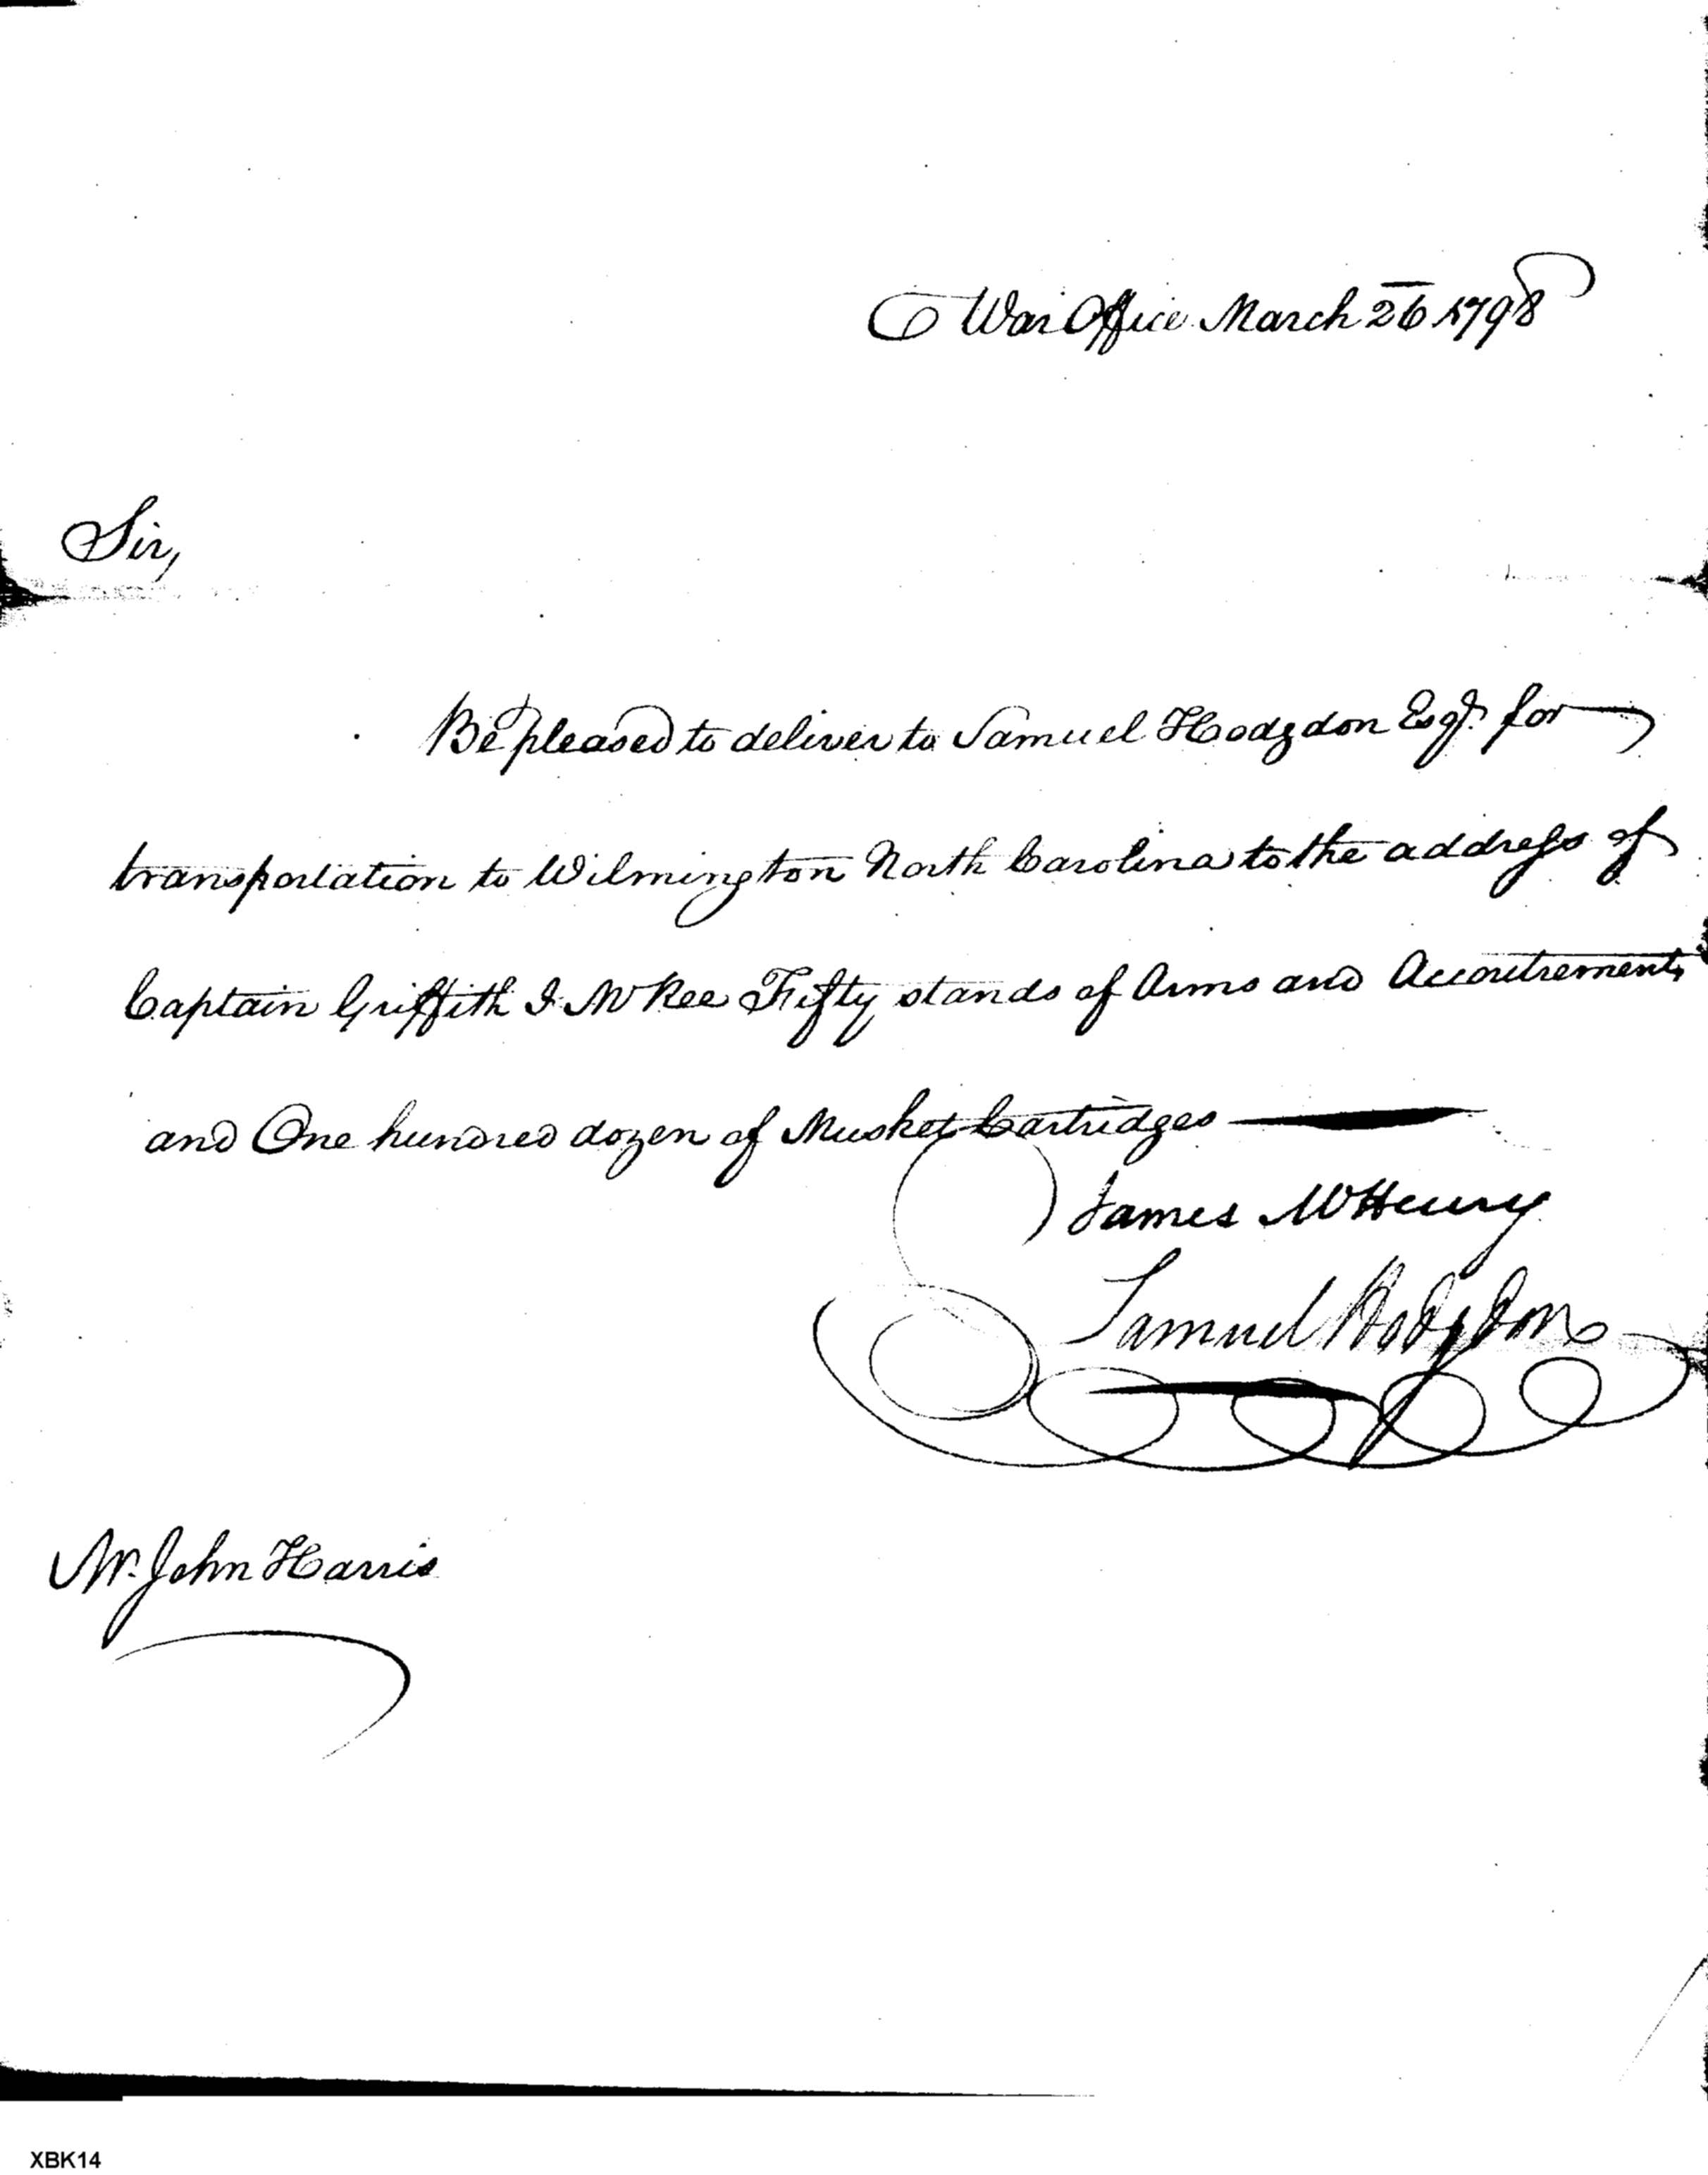 War Office March 26 1798
Sir,
Be pleased to deliver to Samuel Hodgdon Esqr. for
transportation to Wilmington North Carolina to the address of
Captain Griffith I. McRee Fifty stands of Arms and Accoutrements
and One hundred dozen of Musket Cartridges
James McHenry
Samuel Hodgdon
Mr. John Harris
XBK14